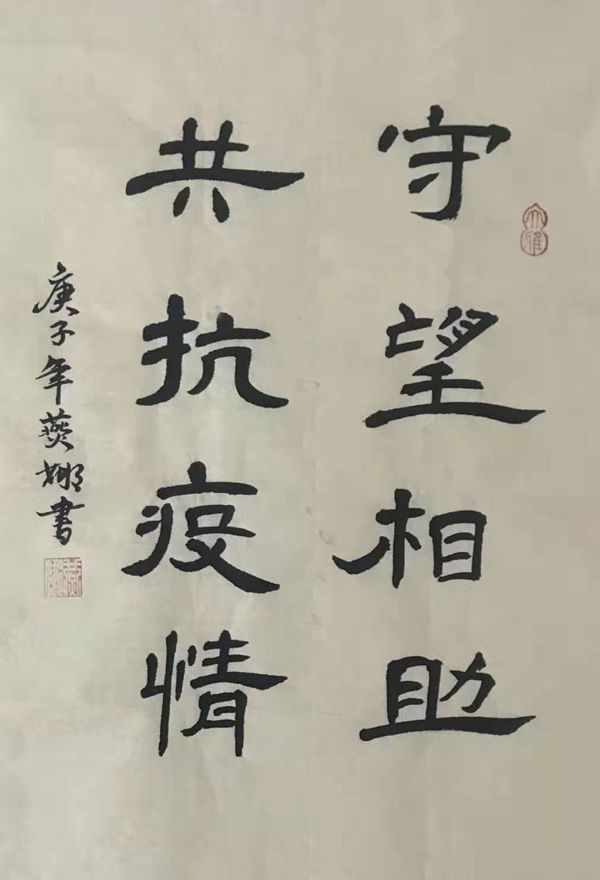 守望相助
共抗疫情
庚子年燕娜書
大雅